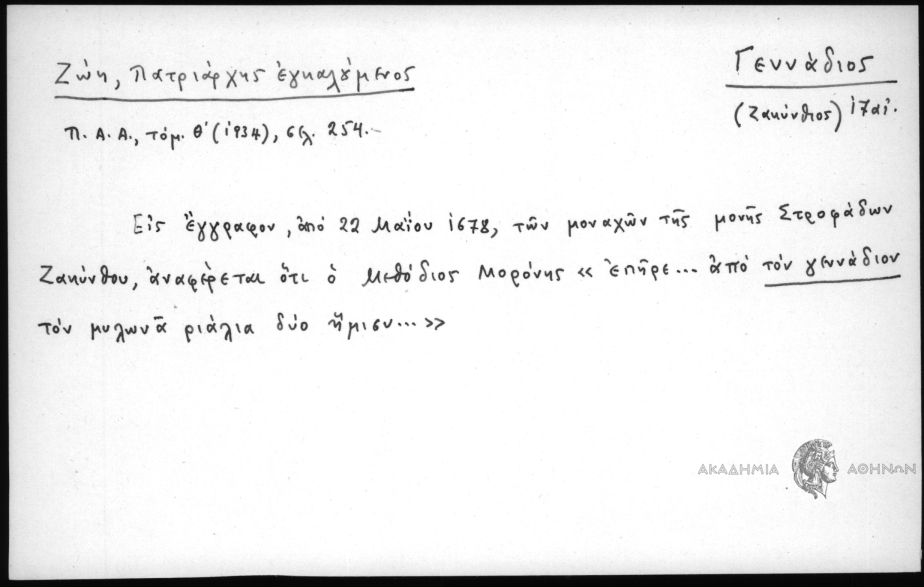 Ζώη, Πατριάρχης ἐγκαλούμενος
Γεννάδιος
Π. Α. Α., τόμ. Θ' (1934), σελ. 254.-
(Ζακύνθιος) 17αἰ.
Εἰς ἔγγραφον, ἀπό 22 Μαΐου 1678, τῶν μοναχῶν τῆς μονῆς Στροφάδων
Ζακύνθου, ἀναφέρεται ὅτι ὁ Μεθόδιος Μορόνης « ἐπῆρε... ἀπό τόν γεννάδιον
τόν μυλωνᾶ ριάλια δύο ἥμισυ... »
ΑΚΑΔΗΜΙΑ ΑΘΗΝΩΝ